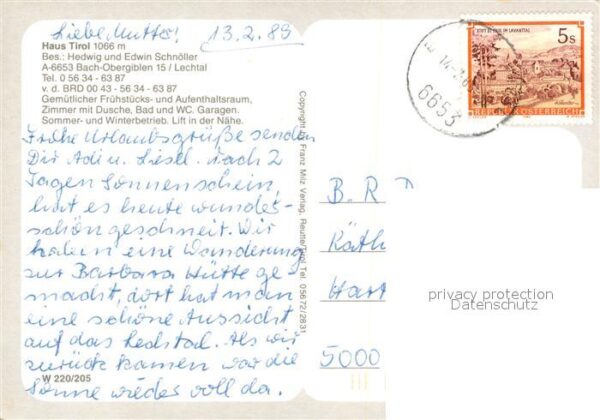 Liebe Mutter! 13.2.89
Haus Tirol 1066 m
Bes.: Hedwig und Edwin Schnöller
A-6653 Bach-Obergiblen 15 / Lechtal
Tel. 0 56 34 - 63 87
v. d. BRD 00 43 - 56 34 - 63 87
Gemütlicher Frühstücks- und Aufenthaltsraum,
Zimmer mit Dusche, Bad und WC. Garagen.
Sommer- und Winterbetrieb. Lift in der Nähe.
Frohe Urlaubsgrüße senden
Dir Adi u. Liesel. Nach 2
Tagen Sonnenschein,
hat es heute wunder-
schön geschneit. Wir
haben eine Wanderung
zur Barbara Hütte ge
macht, dort hat man
eine schöne Aussicht
auf das Lechtal. Als wir
zurück kamen war die
Sonne wieder voll da.
W 220/205
Copyright by Franz Milz Verlag, Reutte/Tirol Tel. 05672/2831
6653
5 S
STIFT ST. PAUL IM LAVANTTAL
REPUBLIK ÖSTERREICH
B. R.
Käth
Hart
5000
privacy protection
Datenschutz